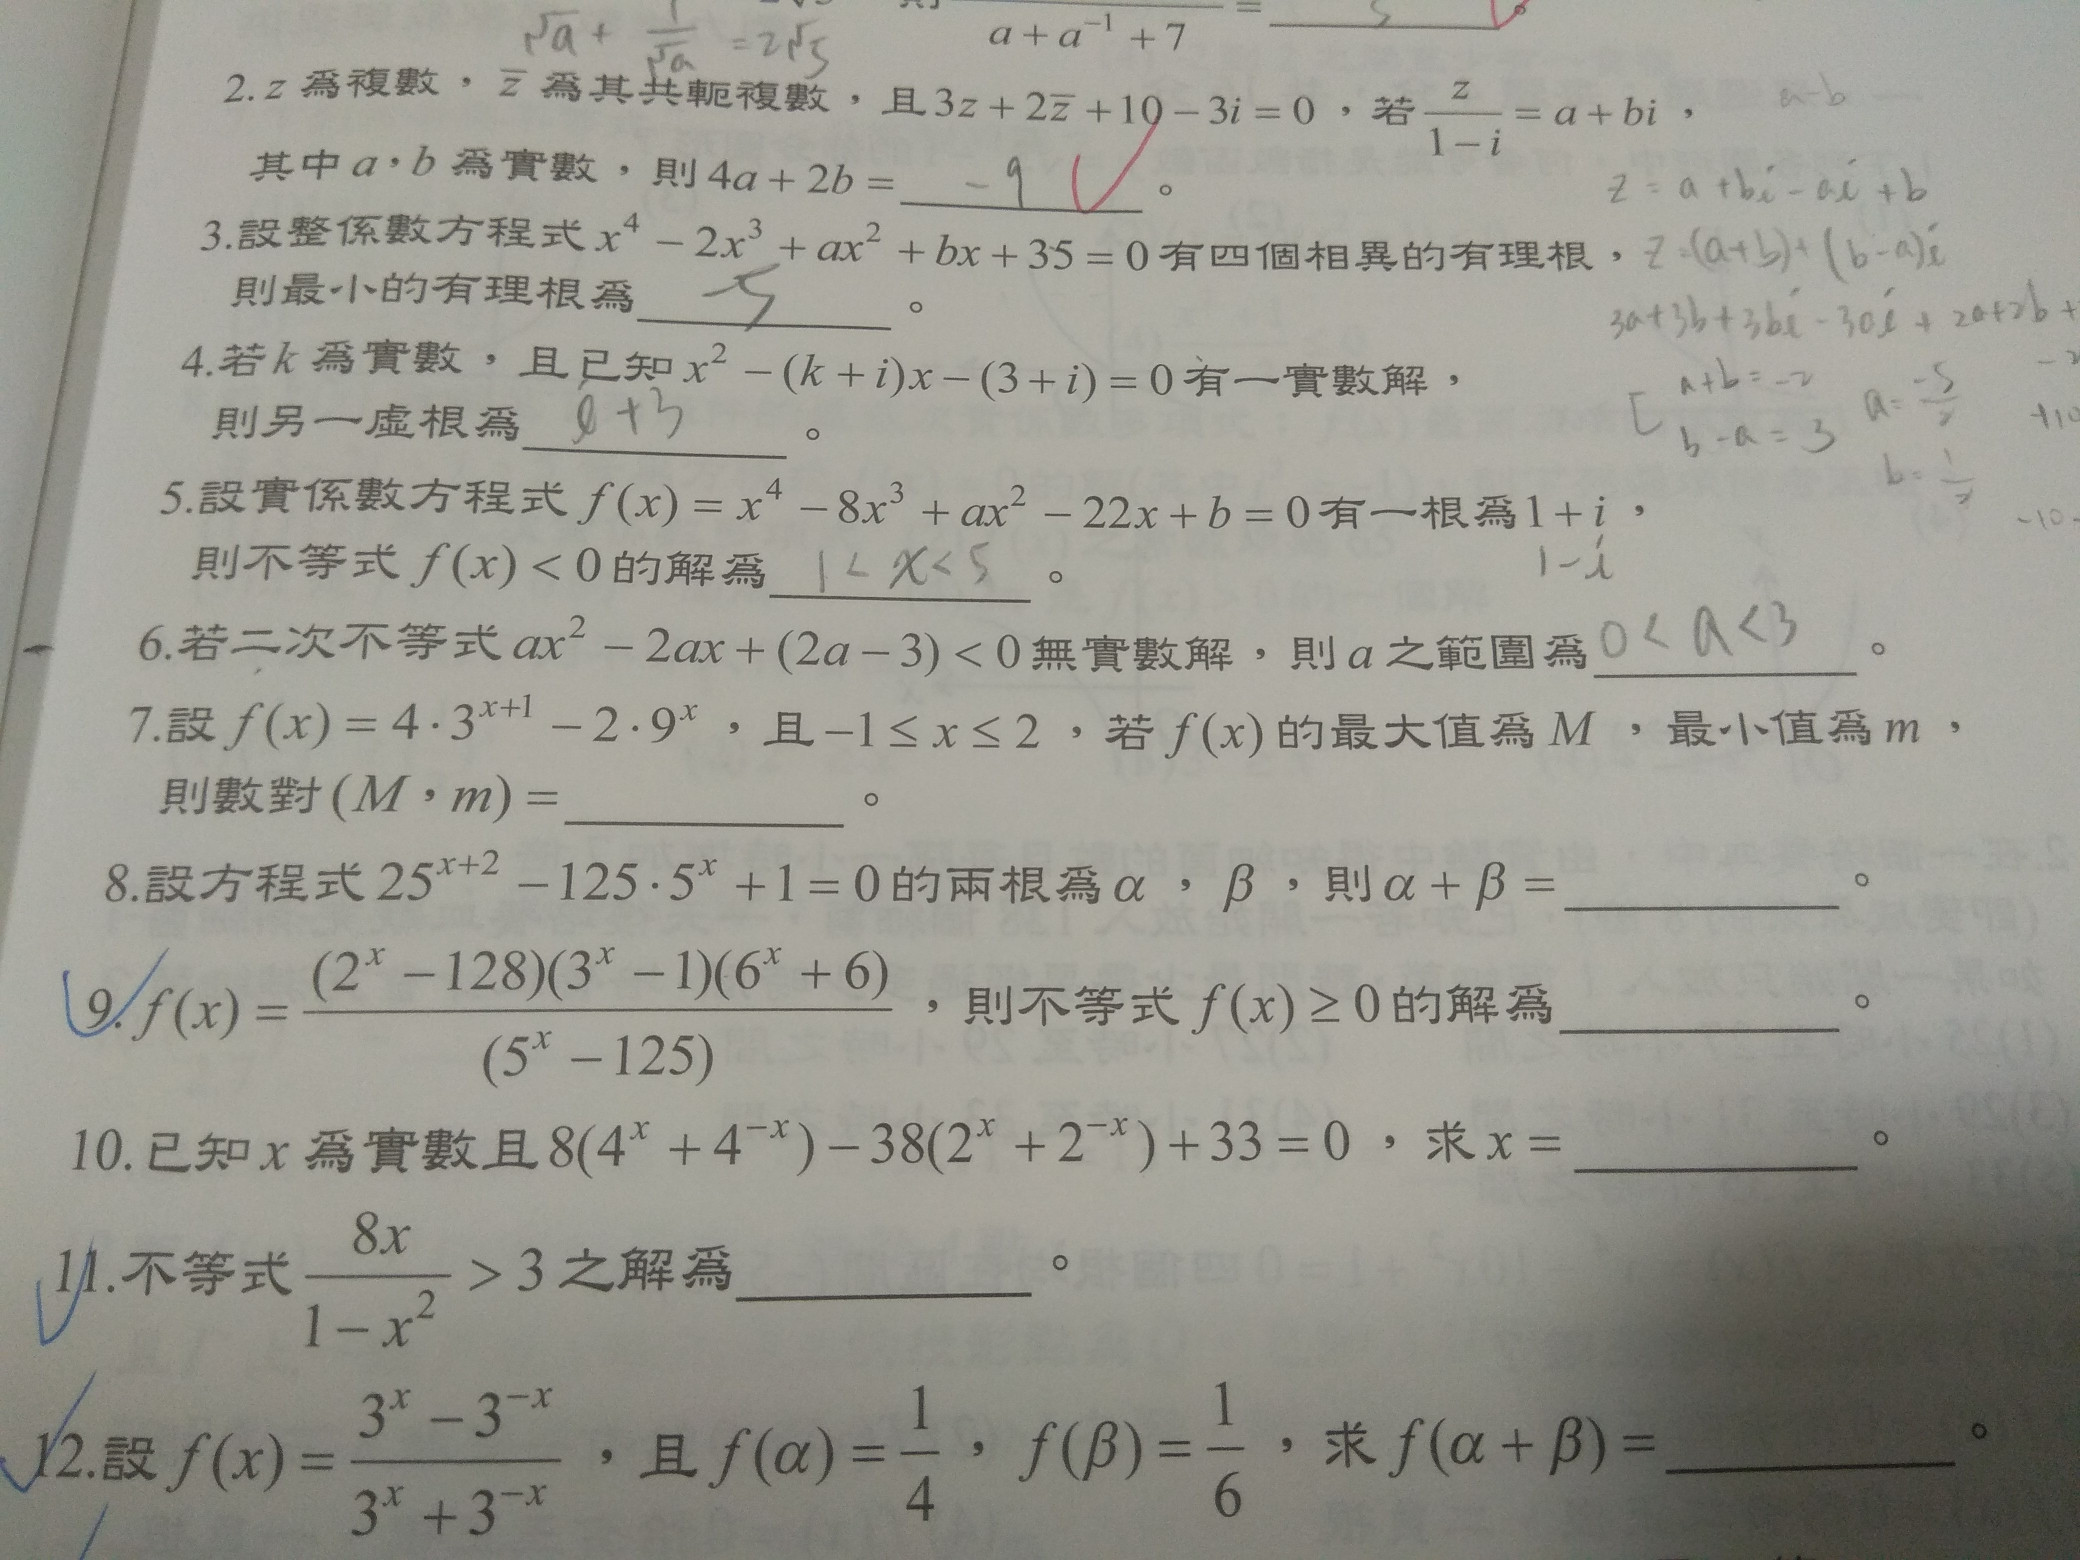 a + a⁻¹ + 7
√a + 1/√a = 2√5
2. z 為複數，z̄ 為其共軛複數，且 3z + 2z̄ + 10 − 3i = 0，若 z/(1 − i) = a + bi，
a-b
其中 a，b 為實數，則 4a + 2b = -9 。
z = a + bi - ai + b
3.設整係數方程式 x⁴ − 2x³ + ax² + bx + 35 = 0 有四個相異的有理根，
z = (a+b) + (b-a)i
則最小的有理根為 -5 。
3a+3b+3bi-3ai + 2a+2b +
4.若 k 為實數，且已知 x² − (k + i)x − (3 + i) = 0 有一實數解，
a+b = -2
a = -5/2
則另一虛根為 i+3 。
b-a = 3
+10
b = 1/2
5.設實係數方程式 f(x) = x⁴ − 8x³ + ax² − 22x + b = 0 有一根為 1 + i，
-10
1-i
則不等式 f(x) < 0 的解為 1 < x < 5 。
6.若二次不等式 ax² − 2ax + (2a − 3) < 0 無實數解，則 a 之範圍為 0 < a < 3 。
7.設 f(x) = 4·3ˣ⁺¹ − 2·9ˣ，且 −1 ≤ x ≤ 2，若 f(x) 的最大值為 M，最小值為 m，
則數對 (M，m) = ______ 。
8.設方程式 25ˣ⁺² − 125·5ˣ + 1 = 0 的兩根為 α，β，則 α + β = ______ 。
9. f(x) = (2ˣ − 128)(3ˣ − 1)(6ˣ + 6)/(5ˣ − 125)，則不等式 f(x) ≥ 0 的解為 ______ 。
10.已知 x 為實數且 8(4ˣ + 4⁻ˣ) − 38(2ˣ + 2⁻ˣ) + 33 = 0，求 x = ______ 。
11.不等式 8x/(1 − x²) > 3 之解為 ______ 。
12.設 f(x) = (3ˣ − 3⁻ˣ)/(3ˣ + 3⁻ˣ)，且 f(α) = 1/4，f(β) = 1/6，求 f(α + β) = ______ 。